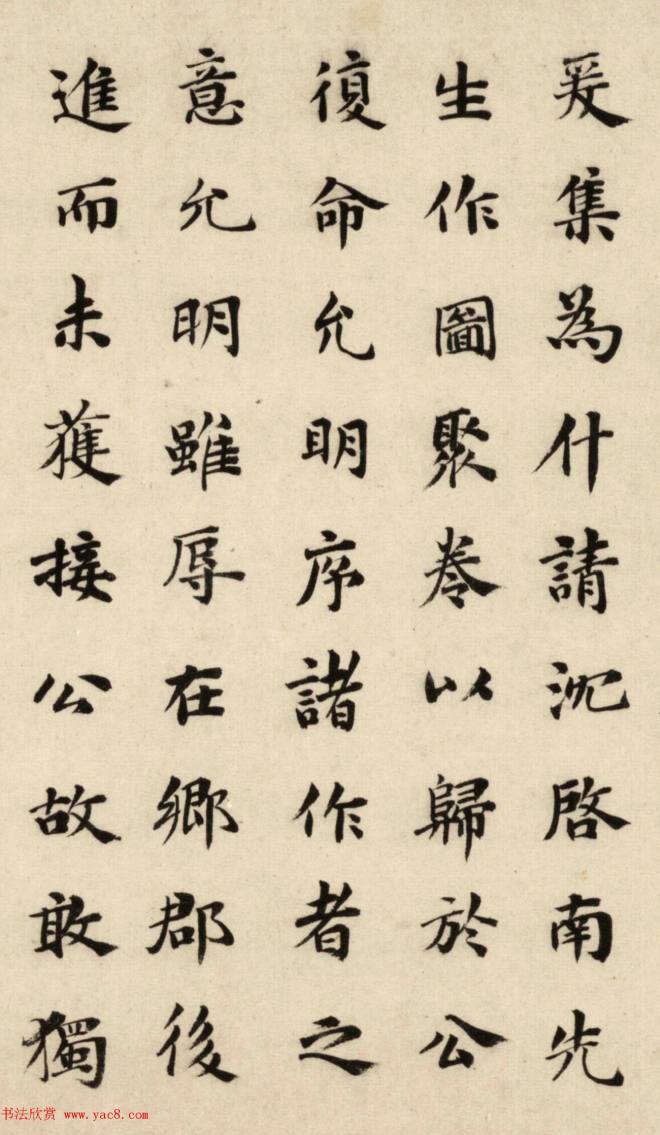 爰集為什請沈啓南先
生作圖聚卷以歸於公
復命允明序諸作者之
意允明雖辱在鄉郡後
進而未獲接公故敢獨
书法欣赏 www.yac8.com